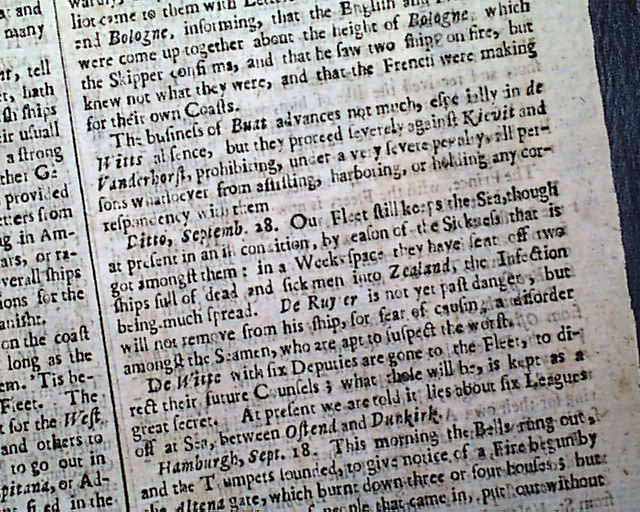 r and
many
nt, tell
er, hath
sh ships
eir usuall
a strong
ther Ge
provided
etters from
ng in Am-
ars, or ra-
verall ships
ions for the
anisht.
on the coast
long as the
em. 'Tis be-
Fleet. The
t for the West
and others to
to go out in
pitana, or Ad-
in the
liot come to them with
and Bologne, informing, that the English and
were come up together about the height of Bologne, which
the Skipper confirma, and that he saw two ships on fire, but
knew not what they were, and that the French were making
for their own Coasts.
The business of Buat advances not much, especially in de
Witts absence, but they proceed severely against Kievit and
Vanderhorst, prohibiting, under a very severe penalty, all per-
sons whatsoever from assisting, harboring, or holding any cor-
respondency with them
Ditto, Septemb. 28. Our Fleet still keeps the Sea, though
at present in an ill condition, by reason of the Sickness that is
got amongst them: in a Weeks space they have sent off two
ships full of dead and sick men into Zealand, the Infection
being much spread. De Ruyter is not yet past danger, but
will not remove from his ship, for fear of causing a disorder
amongst the Seamen, who are apt to suspect the worst.
De Witte with six Deputies are gone to the Fleet, to di-
rect their future Counsels; what those will be, is kept as a
great secret. At present we are told it lies about six Leagues
off at Sea, between Ostend and Dunkirk.
Hamburgh, Sept. 18. This morning the Bells rung out,
and the Trumpets sounded, to give notice of a Fire begun by
the Altena gate, which burnt down three or four houses; but
people that came in, put out without